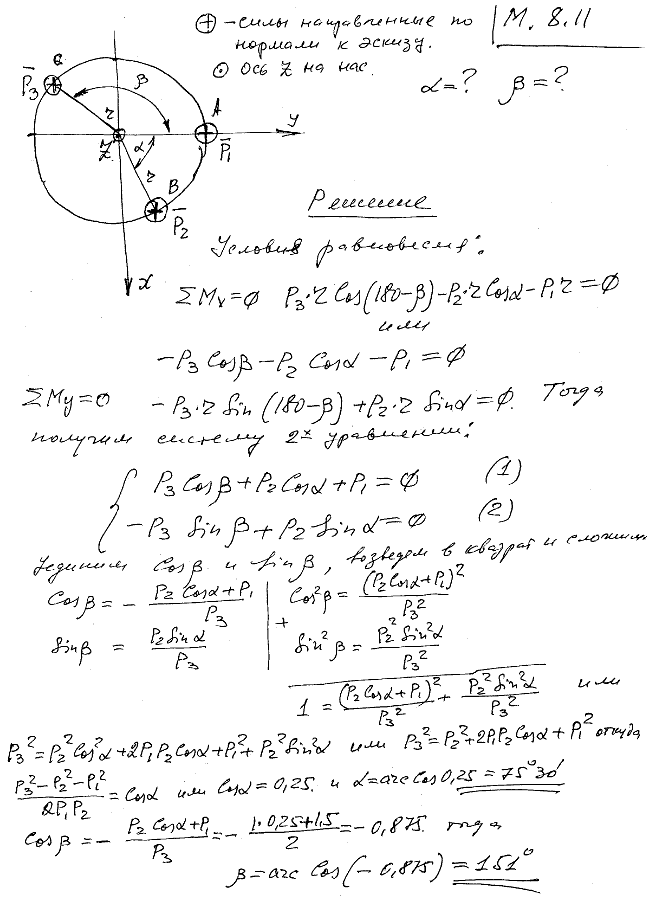 ⊕ - силы направленные по
нормали к эскизу.
М. 8.11
⊙ ось Z на нас.
α = ? β = ?
C
P̅₃
β
r
A
y
Z
α
P̅₁
r
B
P̅₂
x
Решение
Условия равновесия:
ΣMx = 0 P₃·r Cos(180-β) - P₂·r Cosα - P₁r = 0
или
-P₃ Cosβ - P₂ Cosα - P₁ = 0
ΣMy = 0 -P₃·r Sin(180-β) + P₂·r Sinα = 0. Тогда
получим систему 2х уравнений:
P₃ Cosβ + P₂ Cosα + P₁ = 0 (1)
-P₃ Sinβ + P₂ Sinα = 0 (2)
Уединим Cosβ и Sinβ, возведем в квадрат и сложим
Cosβ = - (P₂ Cosα + P₁)/P₃ | Cos²β = (P₂Cosα + P₁)²/P₃²
+
Sinβ = P₂ Sinα/P₃ | Sin²β = P₂² Sin²α/P₃²
1 = (P₂ Cosα + P₁)²/P₃² + P₂² Sin²α/P₃² или
P₃² = P₂²Cos²α + 2P₁P₂Cosα + P₁² + P₂²Sin²α или P₃² = P₂² + 2P₁P₂Cosα + P₁² откуда
(P₃² - P₂² - P₁²)/2P₁P₂ = Cosα или Cosα = 0,25. и α = arc Cos 0,25 = 75°30'
Cosβ = - (P₂ Cosα + P₁)/P₃ = - (1·0,25 + 1,5)/2 = -0,875. тогда
β = arc Cos(-0,875) = 151°